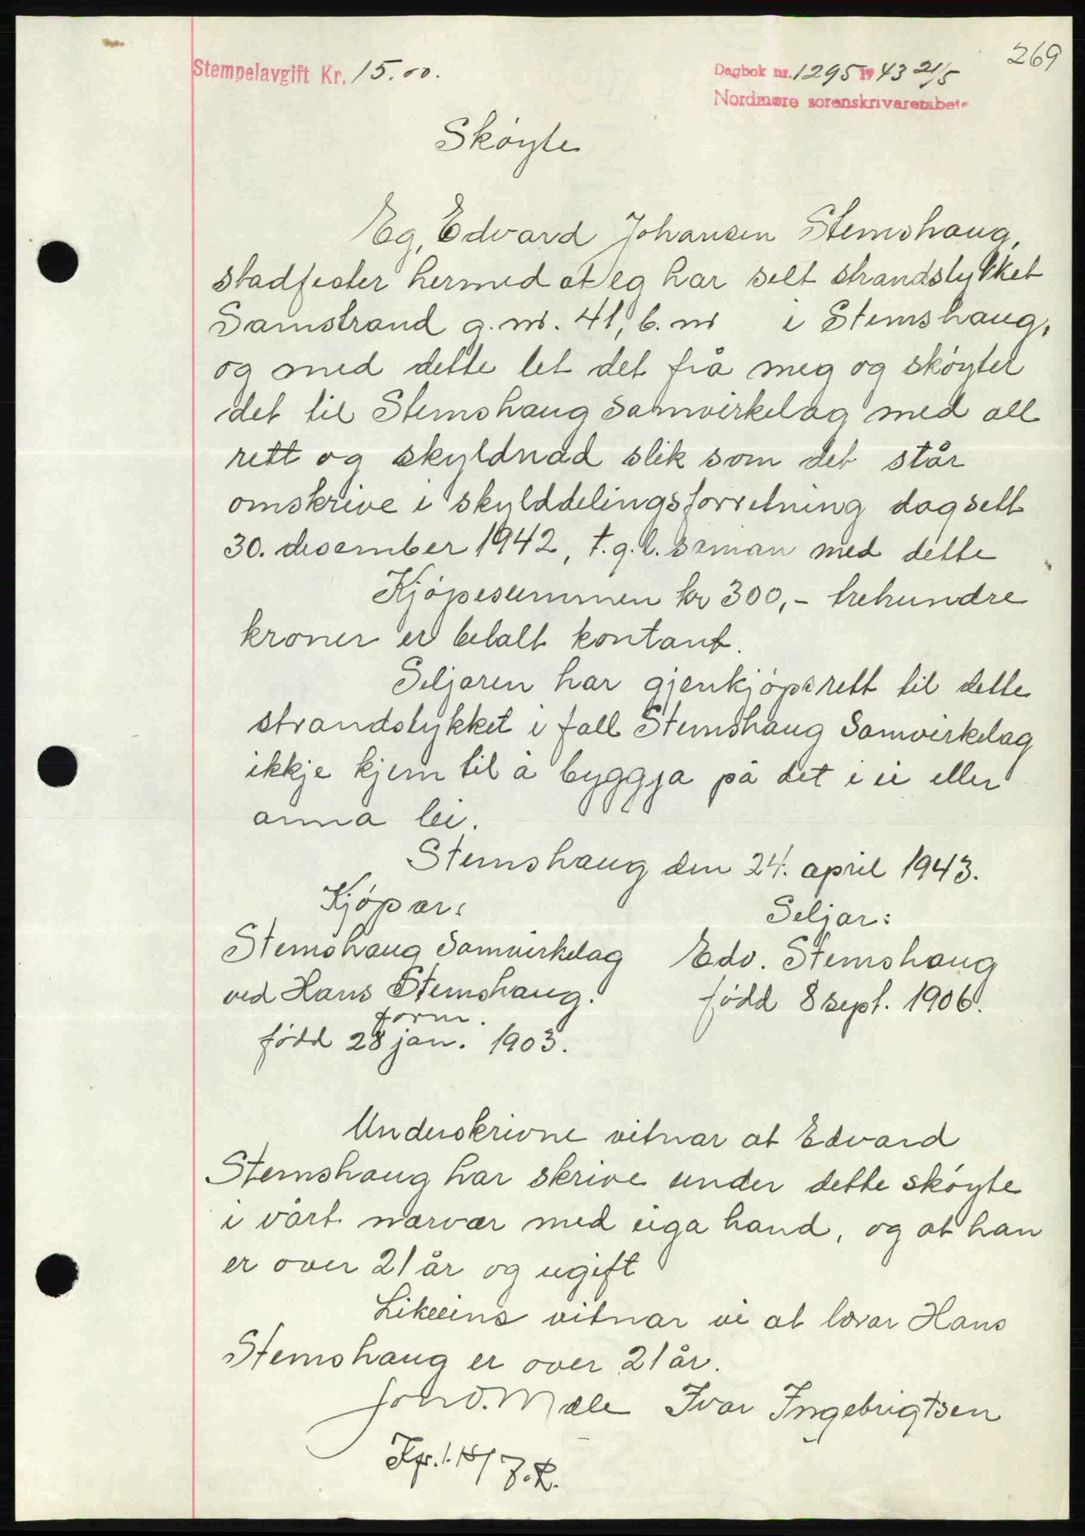 269
Stempelavgift Kr. 15.00.
Dagbok nr. 1295 19 43 21/5
Nordmøre sorenskrivarembete
Skøyte
Eg, Edvard Johansen Stemshaug,
stadfester hermed at eg har selt strandstykket
Samstrand g.nr. 41, b.nr i Stemshaug,
og med dette let det frå meg og skøyter
det til Stemshaug Samvirkelag med all
rett og skyldnad slik som det står
omskrive i skylddelingsforretning dagsett
30. desember 1942, t.g.l. saman med dette
Kjøpesummen kr 300,- trehundre
kroner er betalt kontant.
Seljaren har gjenkjøpsrett til dette
strandstykket i fall Stemshaug Samvirkelag
ikkje kjem til å byggja på det i ei eller
anna lei.
Stemshaug den 24. april 1943.
Kjøpar: Seljar:
Stemshaug Samvirkelag Edv. Stemshaug
ved Hans Stemshaug. født 8 sept. 1906.
form.
født 28 jan. 1903.
Underskrivne vitnar at Edvard
Stemshaug har skrive under dette skøyte
i vårt nærvær med eiga hand, og at han
er over 21 år og ugift
Likeeins vitnar vi at lærar Hans
Stemshaug er over 21 år.
Jon O. Mæle Ivar Ingebrigtsen